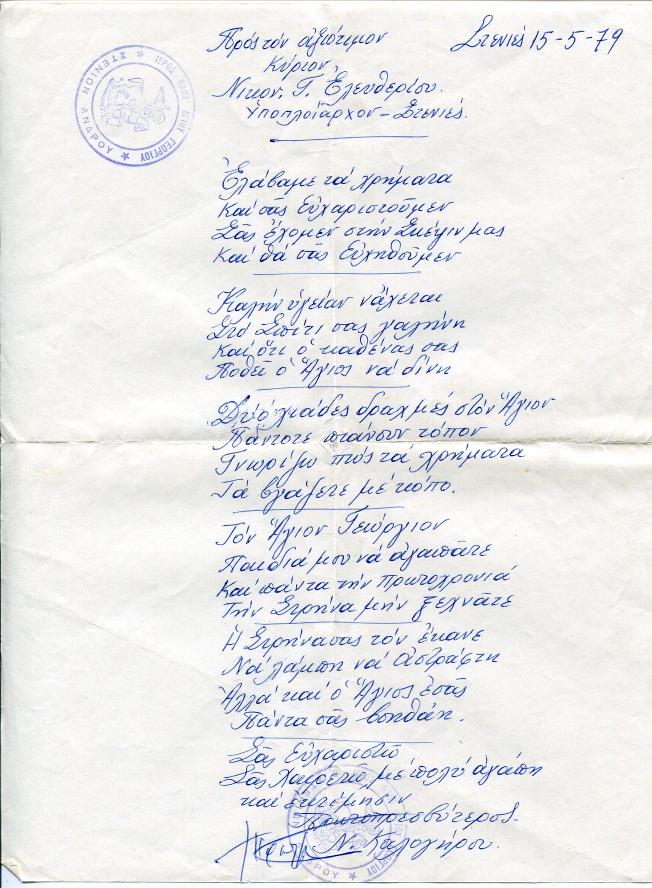 ΙΕΡΟΣ ΝΑΟΣ ΑΓΙΟΥ ΓΕΩΡΓΙΟΥ ★ ΣΤΕΝΙΩΝ ΑΝΔΡΟΥ ★
Στενιές 15-5-79
Πρός τόν ἀξιότιμον
Κύριον
Νικον. Γ. Ἐλευθερίου.
Ὑποπλοίαρχον - Στενιές.
Ἐλάβαμε τά χρήματα
Καί σᾶς Εὐχαριστοῦμεν
Σᾶς ἔχομεν στήν Σκέψιν μας
Καί θά σᾶς Εὐχηθοῦμεν
Καλήν ὑγείαν νἄχεται
Στό Σπίτι σας γαλήνη
Καί ὅτι ὁ καθένας σας
Ποθεῖ ὁ Ἅγιος νά δίνη
Δυό χιάδες δραχμές στόν Ἅγιον
Πάντοτε πιάνουν τόπον
Γνωρίζω πώς τά χρήματα
Τά βγάζετε μέ κόπο.
Τόν Ἅγιον Γεώργιον
Παιδιά μου νά ἀγαπᾶτε
Καί πάντα τήν Πρωτοχρονιά
Τήν Στρήνα μήν ξεχνᾶτε
Ἡ Στρήνα σας τόν ἔκανε
Νά λάμπη νά ἀστράφτη
Ἀλλά καί ὁ Ἅγιος ἐσᾶς
Πάντα σᾶς βοηθάη.
Σᾶς Εὐχαριστῶ
Σᾶς Χαιρετῶ μέ πολύ ἀγάπη
καί ἐκτίμησιν
Πρωτοπρεσβύτερος
Ν. Καλογήρου.